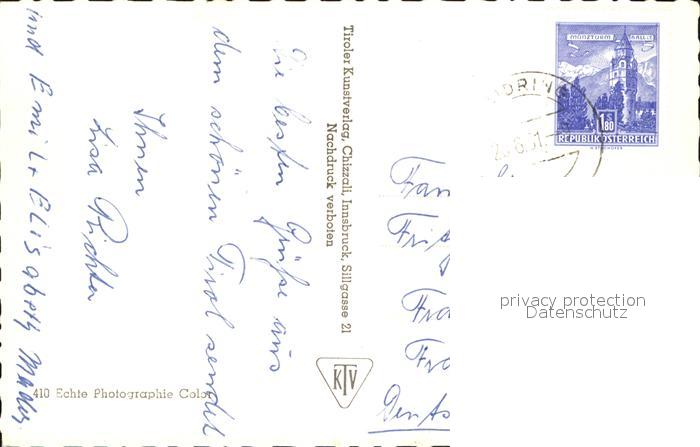 Die besten Grüße aus
dem schönen Tirol sendet
Ihnen
Lisa Richter
und Emil + Elisabeth Mader
410 Echte Photographie Color
Tiroler Kunstverlag, Chizzali, Innsbruck, Sillgasse 21
Nachdruck verboten
KTV
MÜNZTURM HALL i. T.
1.80
S
REPUBLIK ÖSTERREICH
Fam
Frit
Fra
Fra
Deuts
privacy protection
Datenschutz